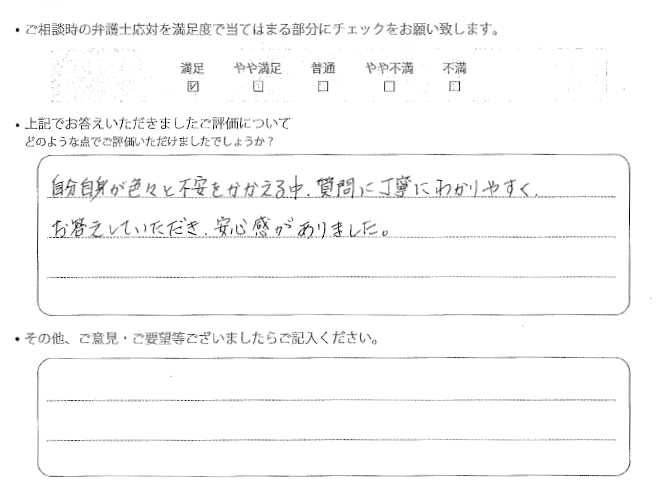 ・ご相談時の弁護士応対を満足度で当てはまる部分にチェックをお願い致します。
満足 やや満足 普通 やや不満 不満
☑ □ □ □ □
・上記でお答えいただきましたご評価について
どのような点でご評価いただけましたでしょうか？
自分自身が色々と不安をかかえる中、質問に丁寧にわかりやすく、
お答えしていただき、安心感がありました。
・その他、ご意見・ご要望等ございましたらご記入ください。